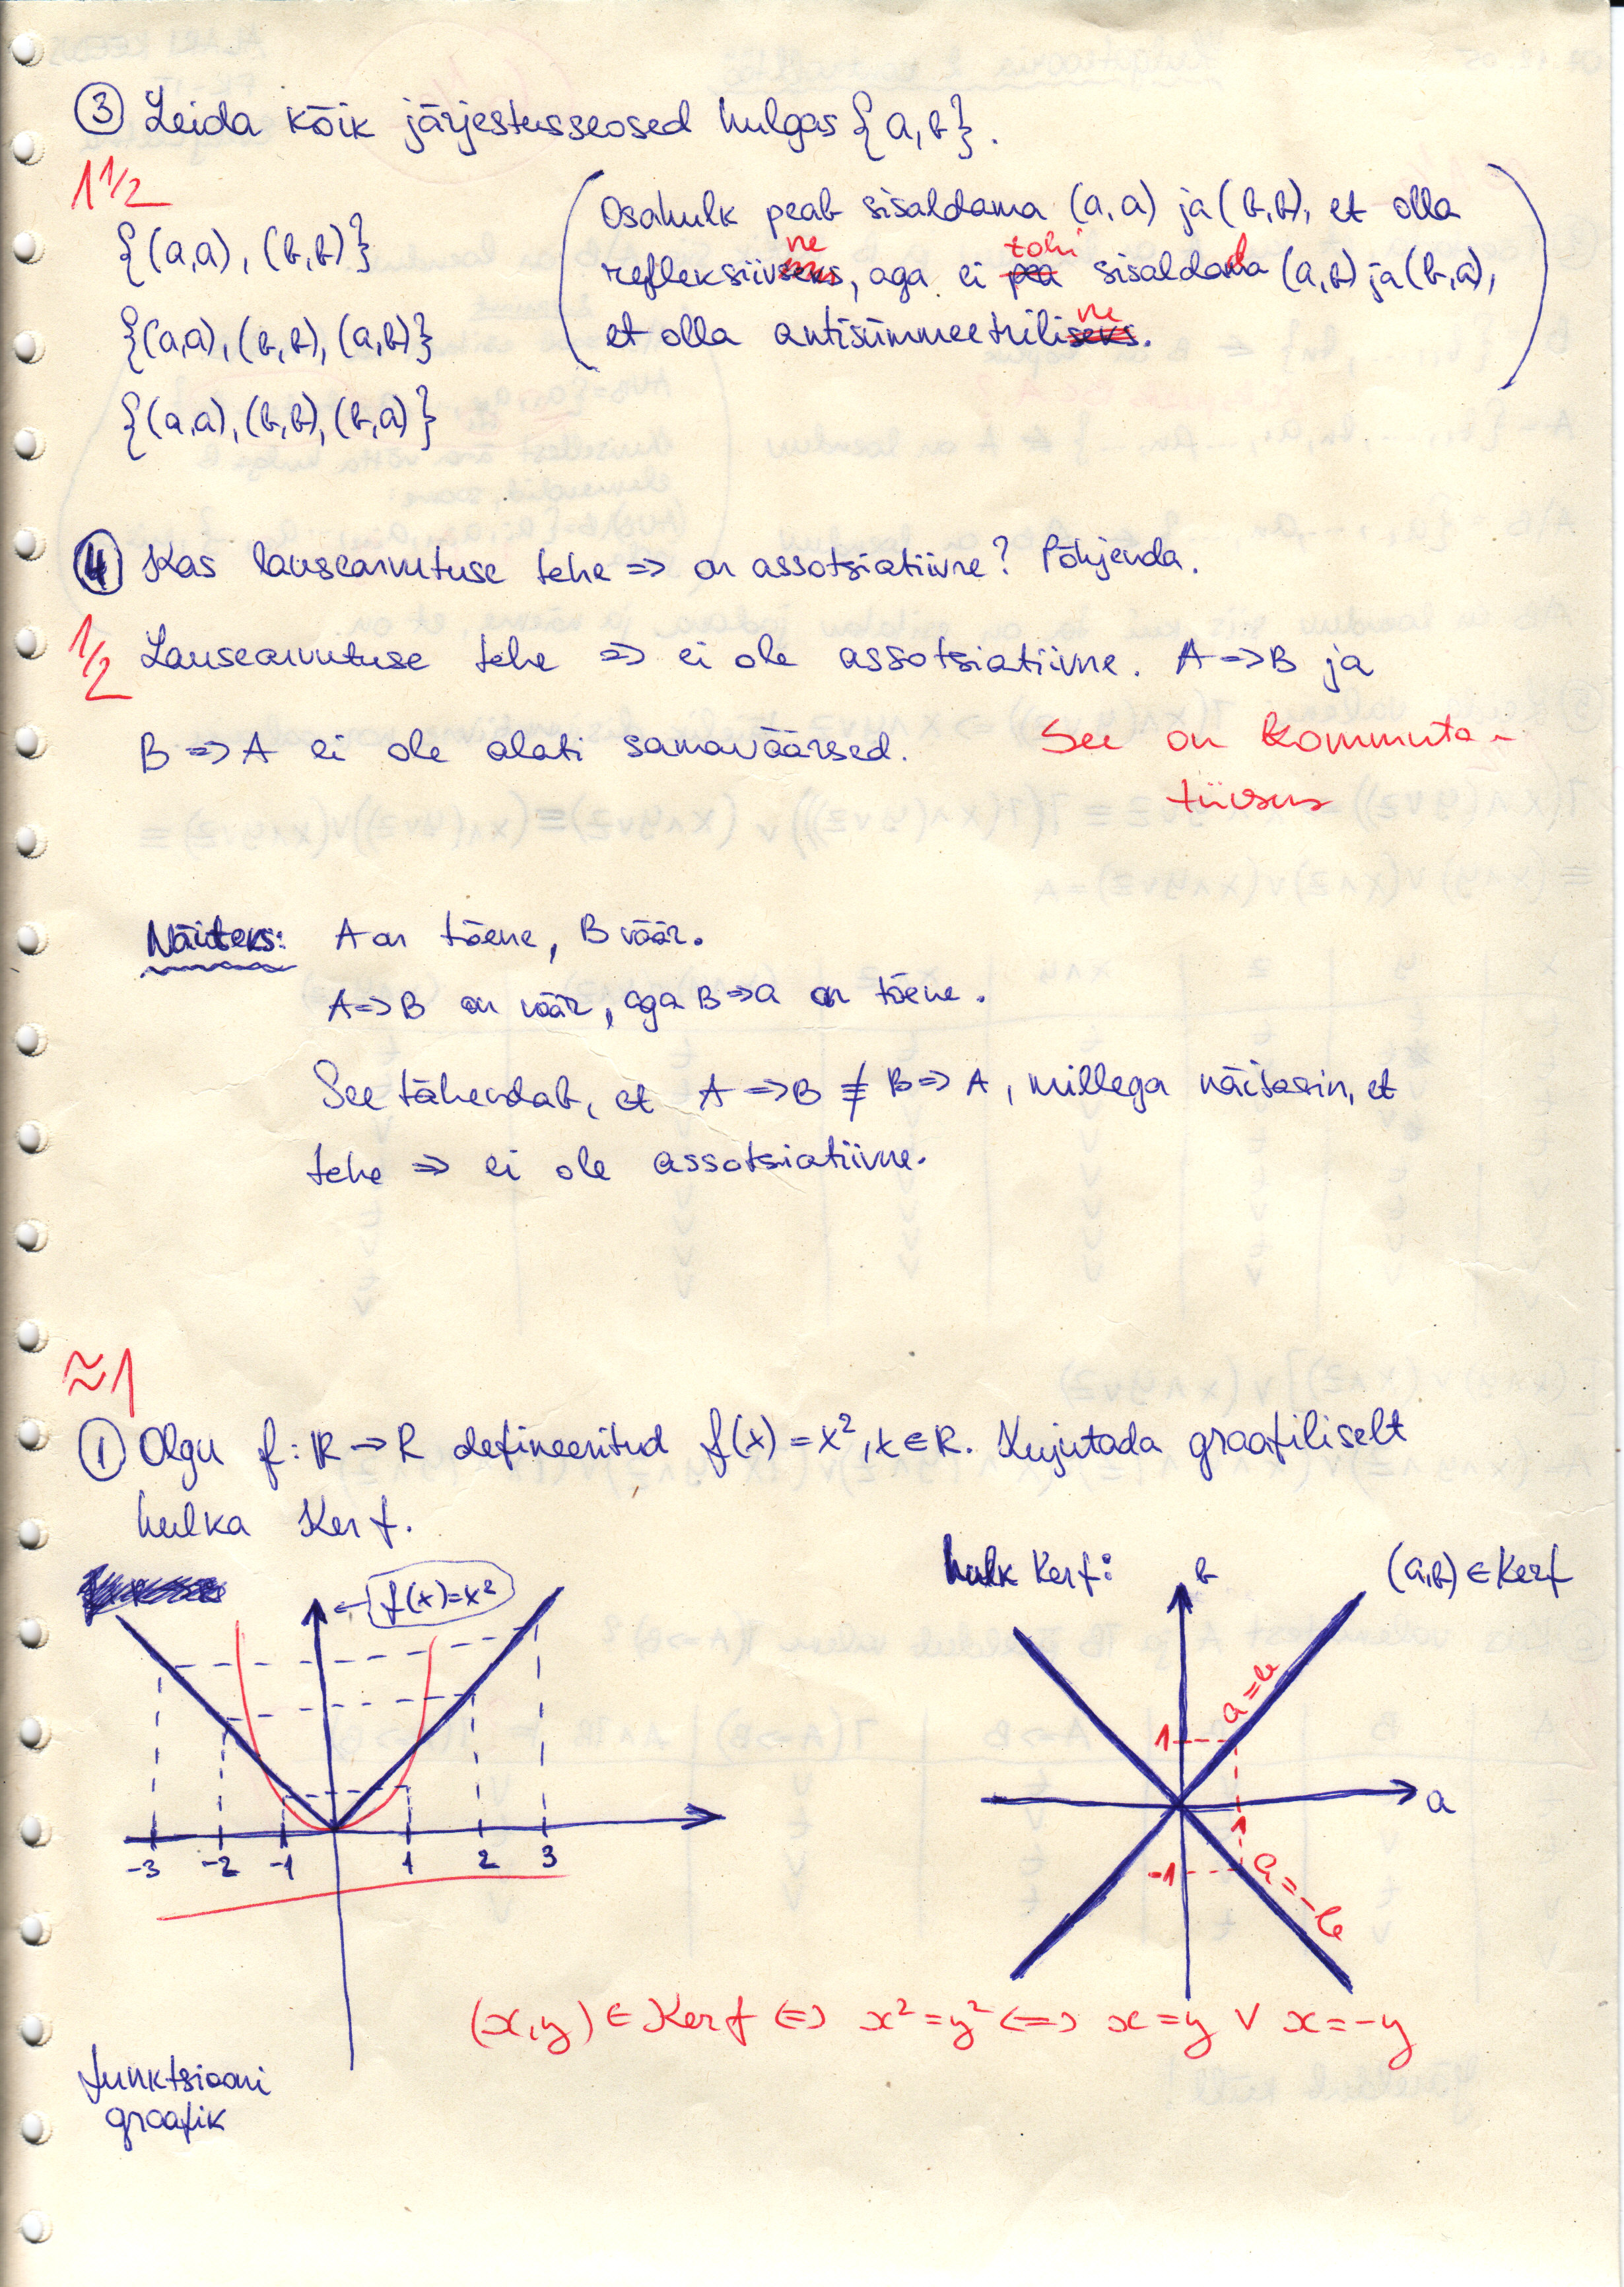 ③ Leida kõik järjestusseosed hulgas {a,b}.
1 1/2
{(a,a), (b,b)}
{(a,a), (b,b), (a,b)}
{(a,a), (b,b), (b,a)}
Osahulk peab sisaldama (a,a) ja (b,b), et olla
ne tohi
refleksiivseks, aga ei pea sisaldada (a,b) ja (b,a),
ne
et olla antisümmeetriliseks.
④ Kas lausearvutuse tehe => on assotsiatiivne? Põhjenda.
1/2
Lausearvutuse tehe => ei ole assotsiatiivne. A=>B ja
B=>A ei ole alati samaväärsed.
See on kommuta-
tiivsus
Näiteks: A on tõene, B väär.
A=>B on väär, aga B=>a on tõene.
See tähendab, et A=>B ≢ B=>A, millega näitasin, et
tehe => ei ole assotsiatiivne.
≈1
① Olgu f: R→R defineeritud f(x)=x², x∈R. Kujutada graafiliselt
hulka Ker f.
f(x)=x²
-3 -2 -1 1 2 3
funktsiooni
graafik
hulk Kerf:
b
(a,b)∈Kerf
a=b
1
a
1
-1
a=-b
(x,y)∈Kerf <=> x²=y² <=> x=y ∨ x=-y